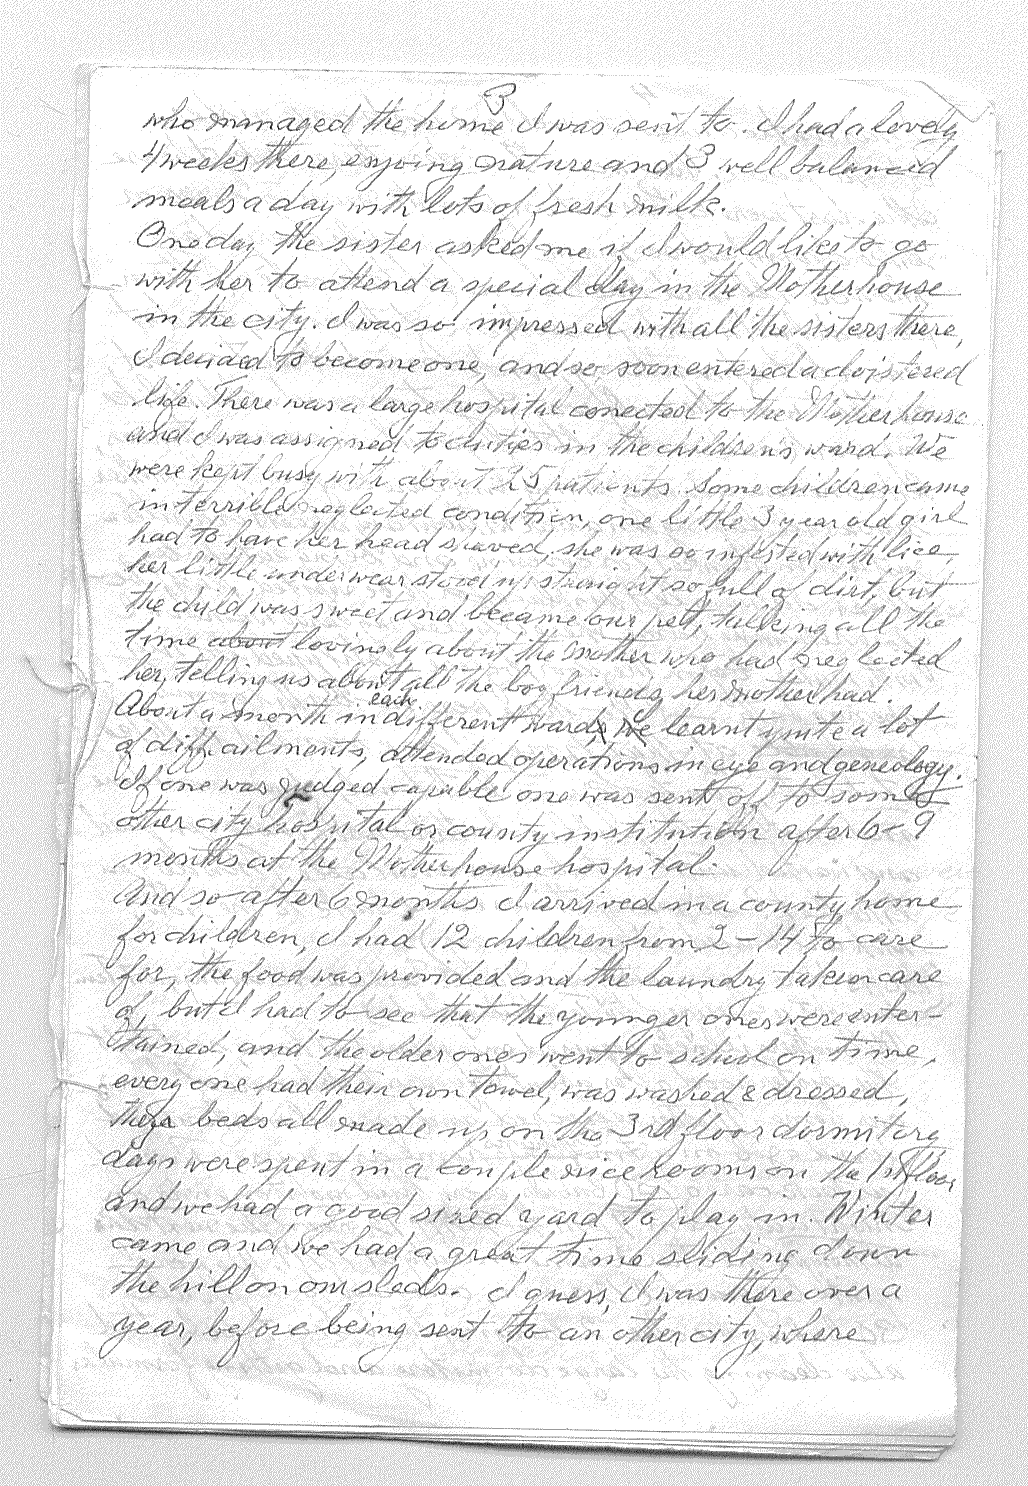 3
who managed the home I was sent to. I had a lovely
4 weeks there, enjoing nature and 3 well balanced
meals a day with lots of fresh milk.
One day, the sister asked me if I would like to go
with her to attend a special day in the Motherhouse
in the city. I was so impressed with all the sisters there,
I decided to become one, and so soon entered a cloistered
life. There was a large hospital conected to the Motherhouse
and I was assigned to duties in the children's ward. We
were kept busy with about 25 patients. Some children came
in terrible neglected condition, one little 3 year old girl
had to have her head shaved, she was so infested with lice,
her little underwear stood up straight so full of dirt, but
the child was sweet and became our pett, talking all the
time about lovingly about the mother who had neglected
her, telling us about all the boyfriends, her mother had.
About a month in each different ward, we learnt quite a lot
of diff. ailments, attended operations in eye and geneology.
If one was judged capable one was sent off to some
other city hospital or county institution after 6-9
months at the Motherhouse hospital.
And so after 6 months I arrived in a county home
for children, I had 12 children from 2-14 to care
for, the food was provided and the laundry taken care
of, but I had to see that the younger ones were enter-
tained, and the older ones went to school on time,
every one had their own towel, was washed & dressed,
their beds all made up on the 3rd floor dormitory
days were spent in a couple nice rooms on the 1st floor
and we had a good sized yard to play in. Winter
came and we had a great time sliding down
the hill on our sleds. I guess, I was there over a
year, before being sent to an other city, where